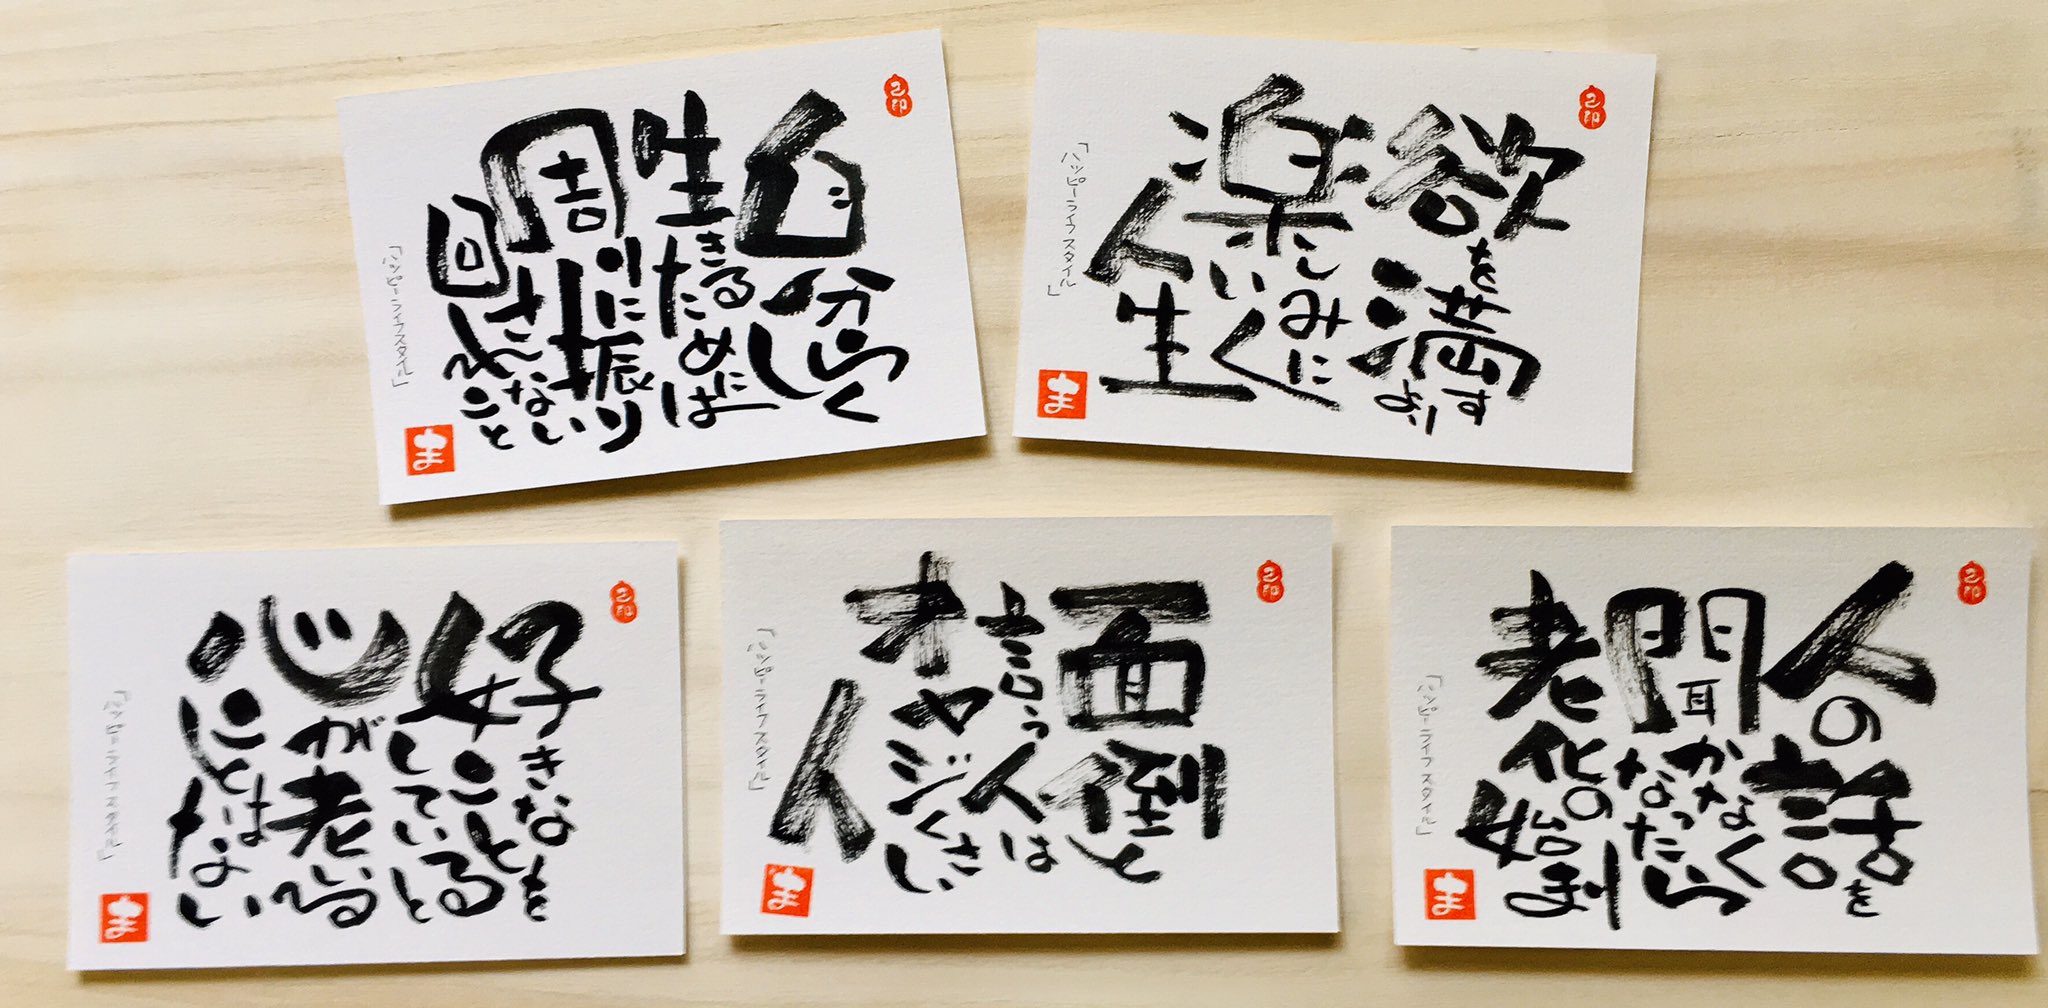 自分らしく
生きるためには
周りに振り
回されないこと
「ハッピーライフスタイル」
欲を満すより
楽しみにいく
人生
「ハッピーライフスタイル」
ま
好きなことを
していると
心が老いる
ことはない
「ハッピーライフスタイル」
ま
面倒と
言う人は
オヤジくさい
人
「ハッピーライフスタイル」
ま
人の話を
聞かなく
なったら
老化の
始まり
「ハッピーライフスタイル」
ま